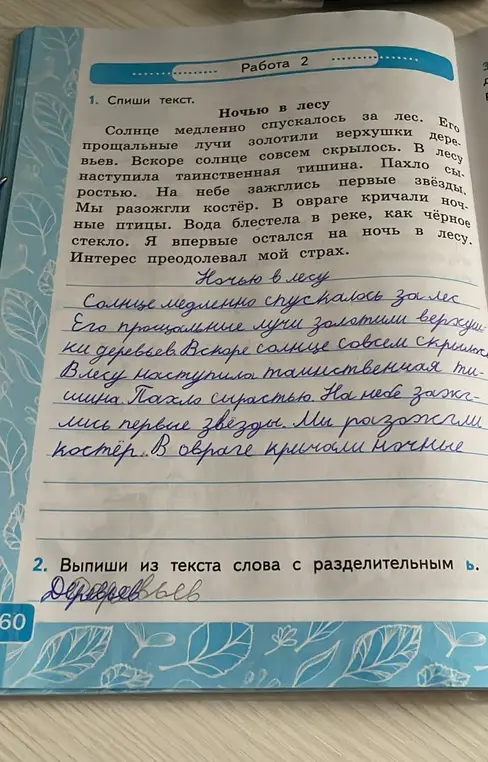 Работа 2
1. Спиши текст.
Ночью в лесу
Солнце медленно спускалось за лес. Его
прощальные лучи золотили верхушки дере-
вьев. Вскоре солнце совсем скрылось. В лесу
наступила таинственная тишина. Пахло сы-
ростью. На небе зажглись первые звёзды.
Мы разожгли костёр. В овраге кричали ноч-
ные птицы. Вода блестела в реке, как чёрное
стекло. Я впервые остался на ночь в лесу.
Интерес преодолевал мой страх.
Ночью в лесу
Солнце медленно спускалось за лес
Его прощальные лучи золотили верхуш-
ки деревьев. Вскоре солнце совсем скрылось
В лесу наступила таинственная ти-
шина. Пахло сырастью. На небе зажг-
лись первые звёзды. Мы разажгли
костёр. В овраге кричали ночные
2. Выпиши из текста слова с разделительным ь.
Деревьев
60